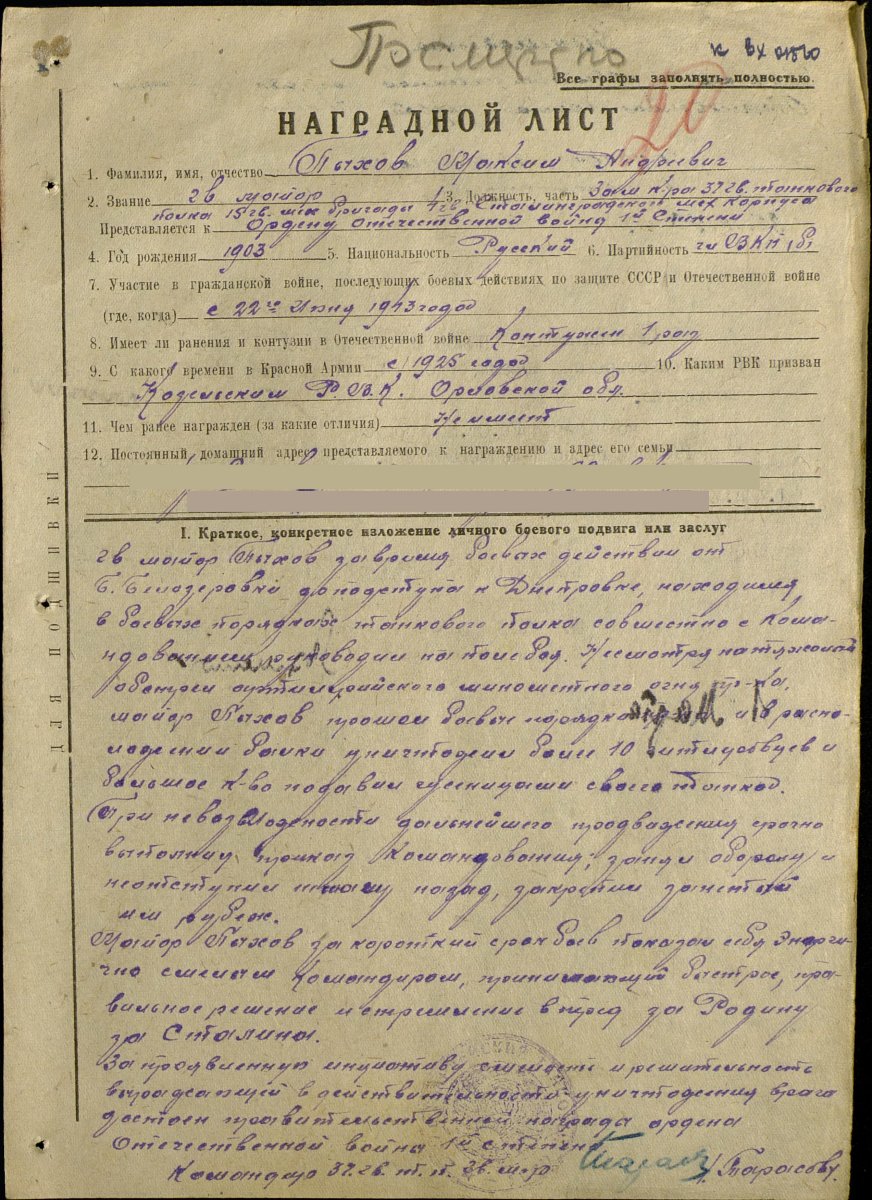 Посмертно
к вх 01520
Все графы заполнять полностью.
20
НАГРАДНОЙ ЛИСТ
1. Фамилия, имя, отчество Пыхов Максим Андреевич
2. Звание гв майор 3. Должность, часть Зам к-ра 37 гв. танкового
полка 15 гв. мех бригады 4 гв. Сталинградского мех корпуса
Представляется к Ордену Отечественной войны 1й Степени
4. Год рождения 1903 5. Национальность Русский 6. Партийность чл ВКП(б)
7. Участие в гражданской войне, последующих боевых действиях по защите СССР и Отечественной войне
(где, когда) с 22го Июня 1943 года
8. Имеет ли ранения и контузии в Отечественной войне Контужен 1 раз
9. С какого времени в Красной Армии с 1925 года 10. Каким РВК призван
Козельским Р.В.К. Орловской обл.
11. Чем ранее награжден (за какие отличия) Не имеет
12. Постоянный, домашний адрес представляемого к награждению и адрес его семьи
I. Краткое, конкретное изложение личного боевого подвига или заслуг
гв майор Пыхов за время боевых действий от
Б. Белозеровки до подступа к Днепровке, находился
в боевых порядках танкового полка совместно с кома-
ндованием руководил на поле боя. Несмотря на тяжолый
обстрел артилерийского минометного огня пр-ка,
майор Пыхов прошол боевые порядки и в распо-
ложении балки уничтожил более 10 гитлеровцев и
большое к-во подавил гусеницами своего танка.
При невозможности дальнейшего продвяжения срочно
выполнил приказ командования; занял оборону и
неотступил ни шагу назад, закрепил занетый
им рубеж.
Майор Пыхов за короткий срок боев показал себя энерги-
чно смелым командиром, принимающий быстрое, пра-
вильное решение и стремление вперед за Родину
за Сталина.
За проявленную инициативу смелость и решительность
выражающей в действительности уничтожения врага
достоен правительственной награды ордена
Отечественной война 1й степени
Командир 37 гв. т. п. гв. м-р /Тарасов/.
ДЛЯ ПОДШИВКИ